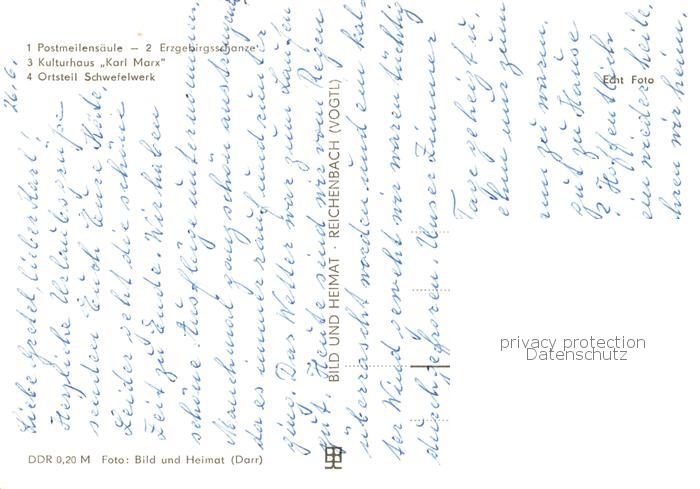 1 Postmeilensäule – 2 Erzgebirgsschanze
3 Kulturhaus „Karl Marx"
4 Ortsteil Schwefelwerk
Echt Foto
26.6.
Liebe Gretel, lieber Karl!
Herzliche Urlaubsgrüße
senden Euch Eure Käte,
Leider geht die schöne
Zeit zu Ende. Wir haben
schöne Ausflüge unternommen,
Manchmal ganz schön anstrengend
da es immer rauf und runter
ging. Das Wetter war zum Laufen
gut. Heute sind wir vom Regen
überrascht worden und ein kal-
ter Wind geweht wir waren tüchtig
durchgefroren. Unser Zimmer
Tage geheizt
zum
zu warm.
gut zu Hause
? Hoffentlich
ein wieder heile,
wir heim,
BILD UND HEIMAT · REICHENBACH (VOGTL)
privacy protection
Datenschutz
DDR 0,20 M Foto: Bild und Heimat (Darr)